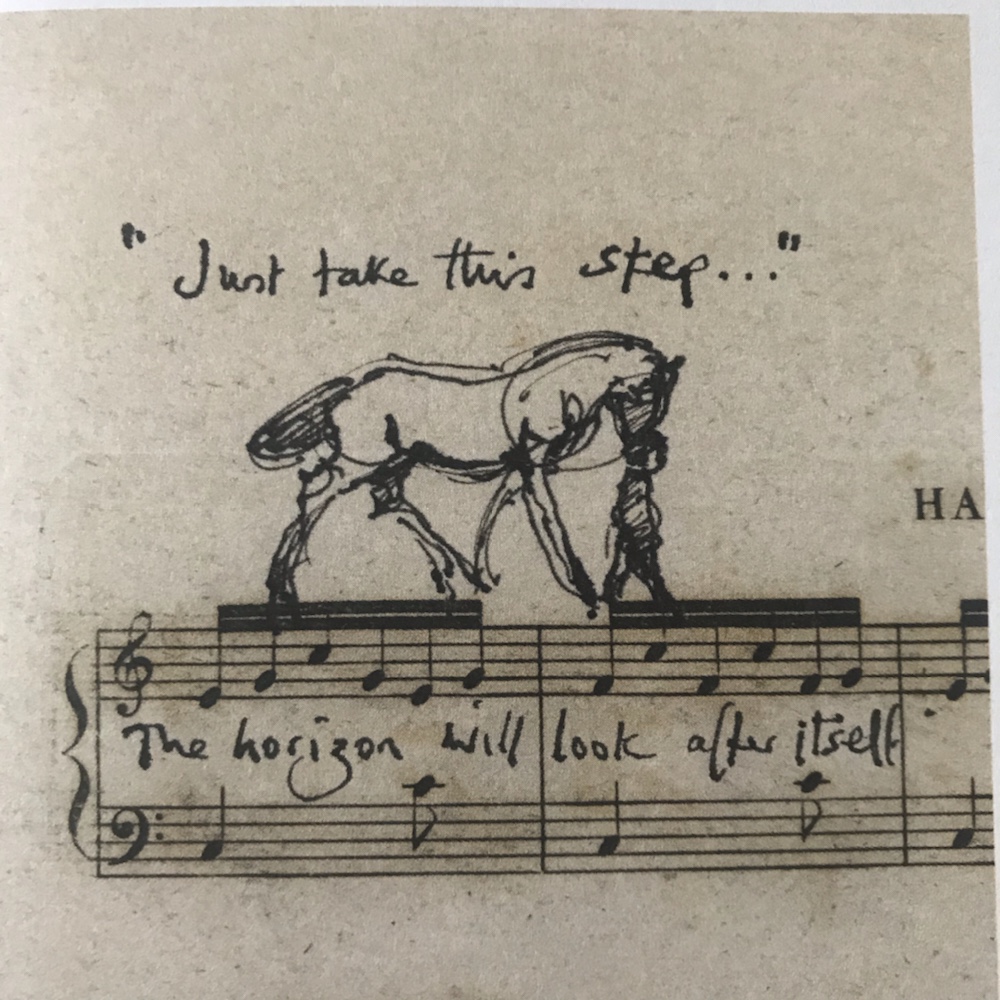 "Just take this step..."
HA
The horizon will look after itself.